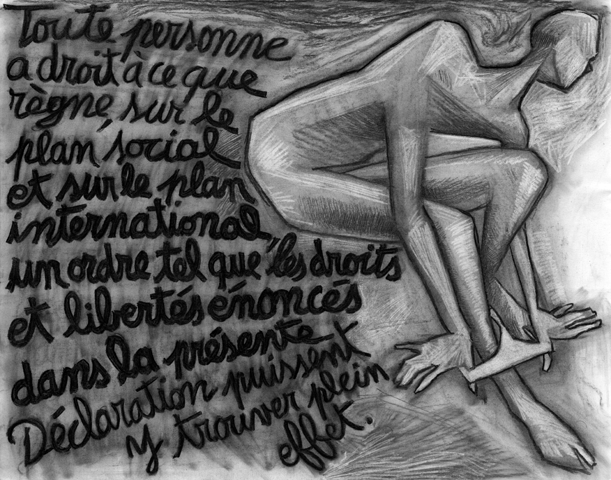 Toute personne
a droit à ce que
règne, sur le
plan social
et sur le plan
international,
un ordre tel que les droits
et libertés énoncés
dans la présente
Déclaration puissent
y trouver plein
effet.